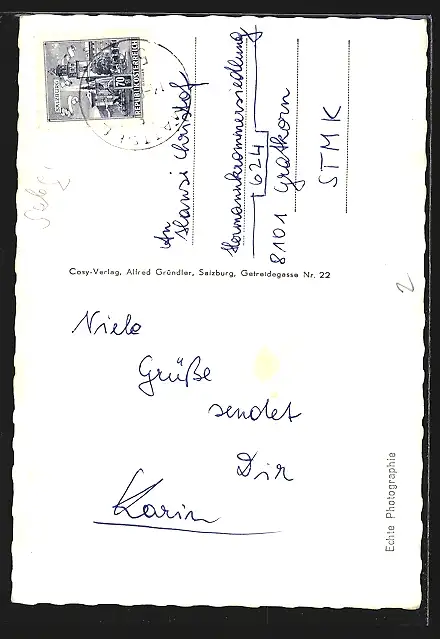 REPUBLIK ÖSTERREICH
70
An
Hansi Christof
Hermannkrommersiedlung
624
8101 Gratkorn
STMK
Cosy-Verlag, Alfred Gründler, Salzburg, Getreidegasse Nr. 22
2
Viele
Grüße
sendet
Dir
Karin
Echte Photographie